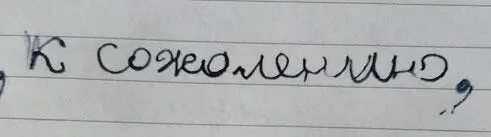 , к сожалению,